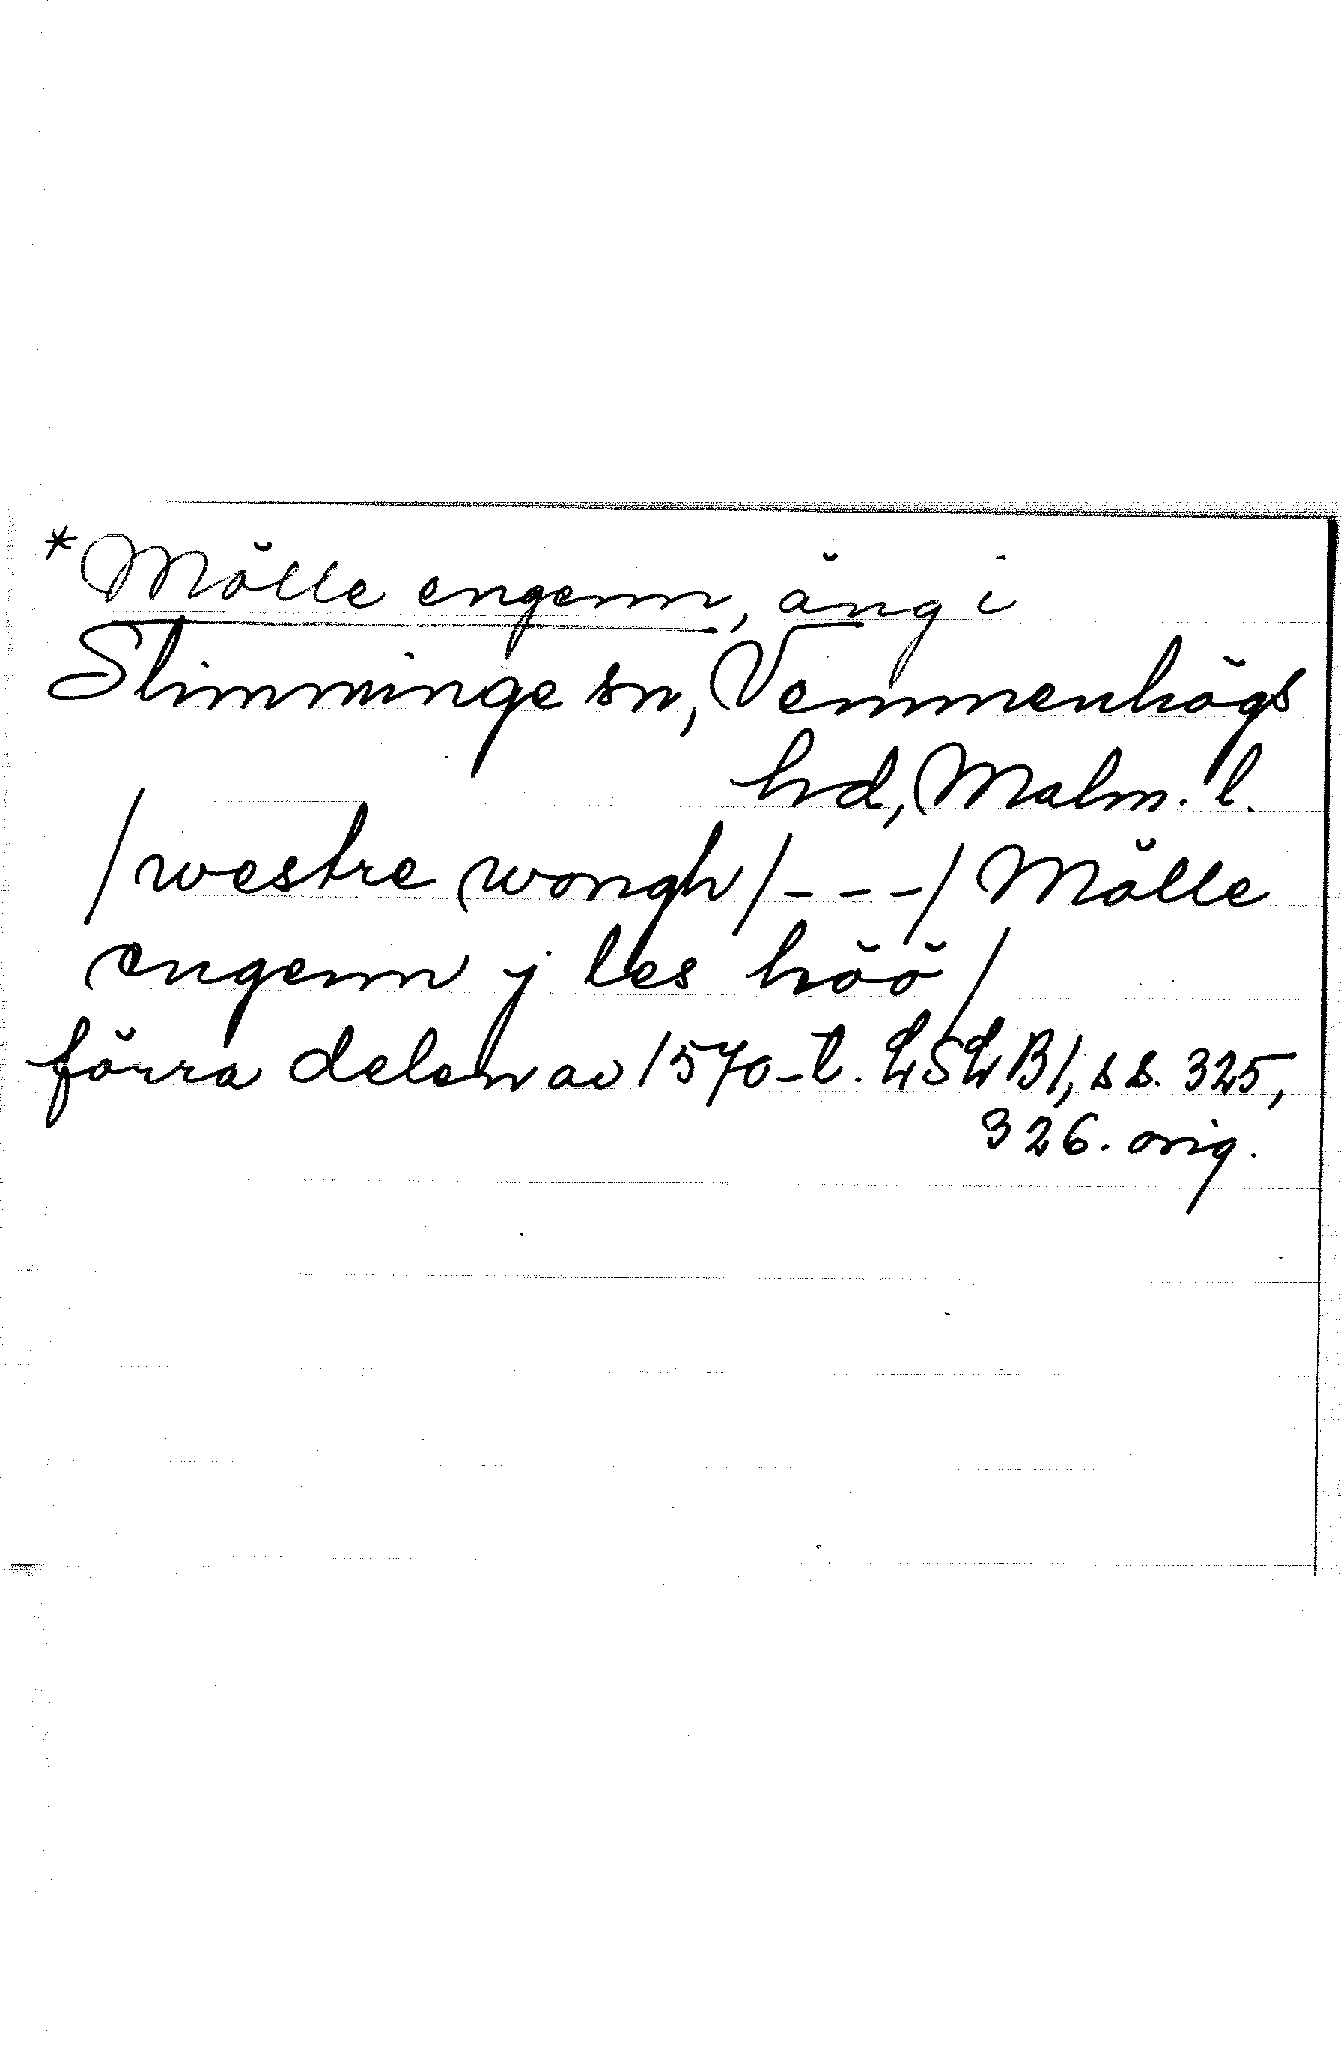 *Mölle engenn, äng i
Slimminge sn, Vemmenhögs
hd, Malm. l.
/westre wongh/---/Mölle
engenn j les höö/
förra delen av 1570-t. LSLB1, ss. 325,
326. orig.